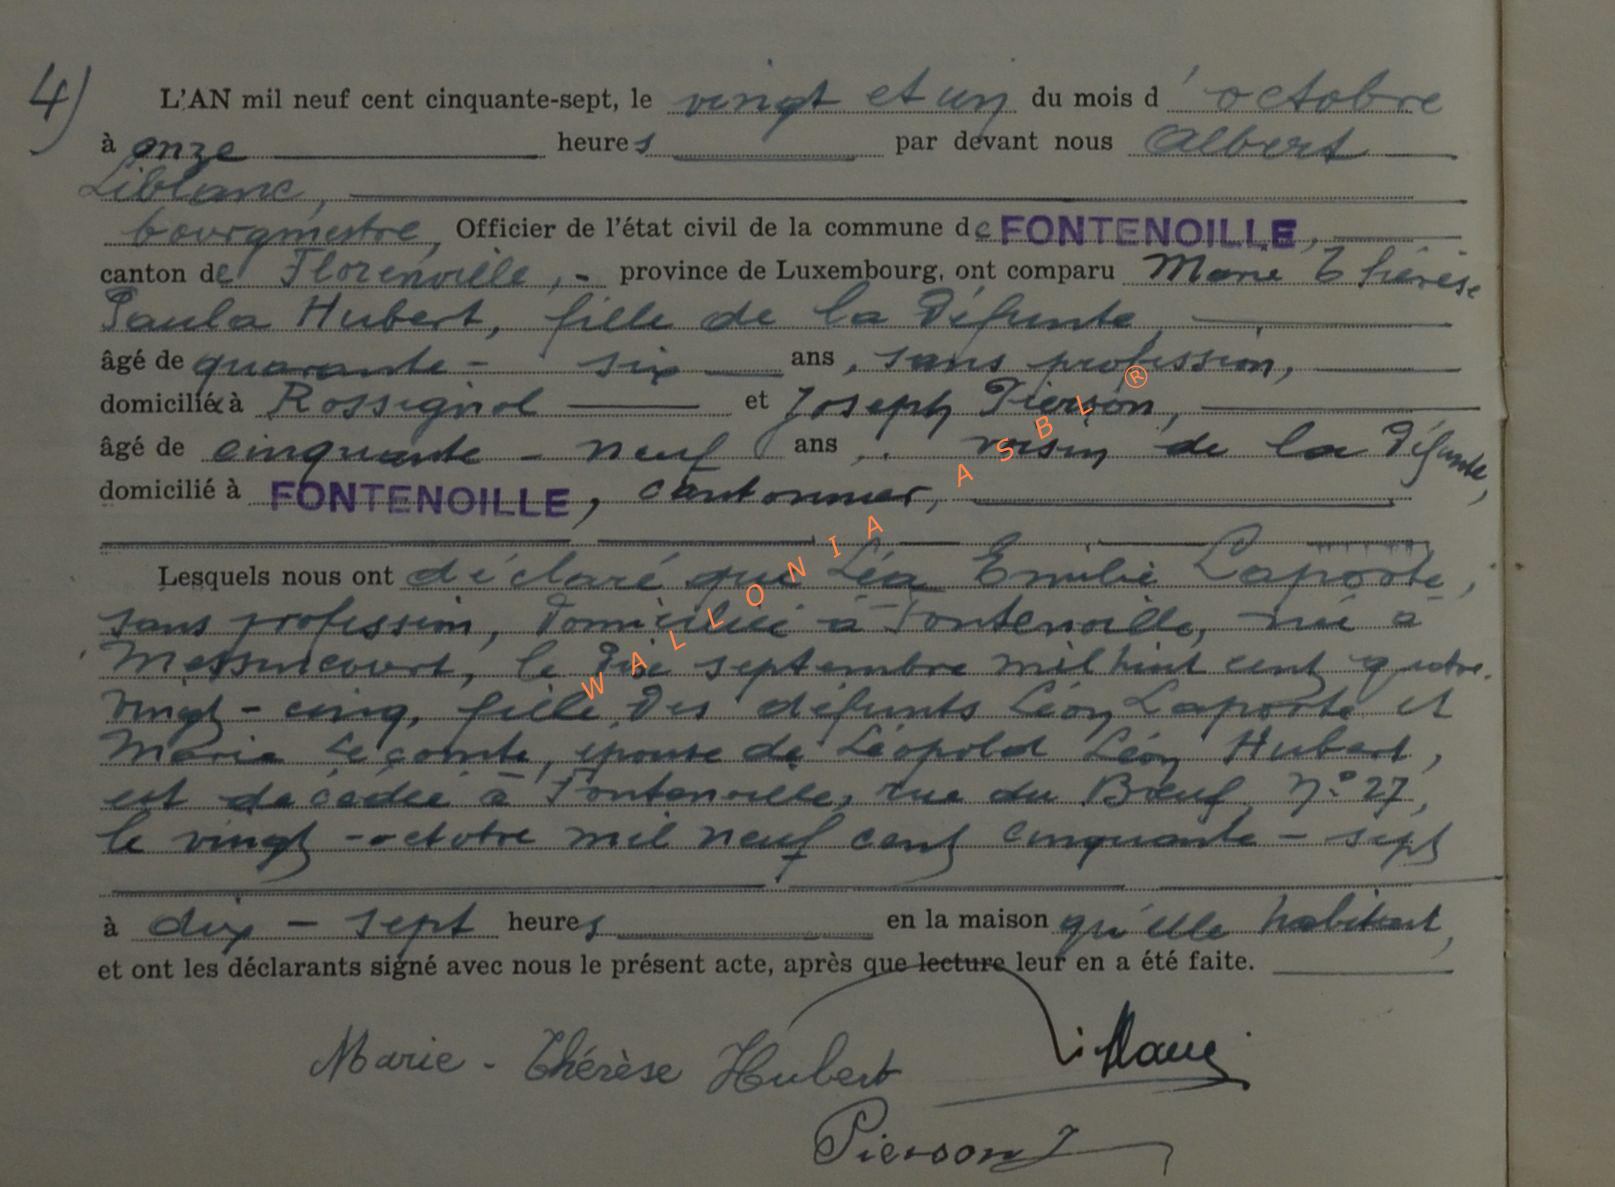 4)
L'AN mil neuf cent cinquante-sept, le vingt et un du mois d'octobre
à onze heures par devant nous Albert
Liblanc,
bourgmestre, Officier de l'état civil de la commune de FONTENOILLE,
canton de Florenville, - province de Luxembourg, ont comparu Marie Thérèse
Paula Hubert, fille de la défunte,
âgé de quarante - six ans, sans profession,
domicilié à Rossignol et Joseph Pierson,
âgé de cinquante - neuf ans, voisin de la défunte,
domicilié à FONTENOILLE, cantonnier,
Lesquels nous ont déclaré que Léa Emilie Laporte,
sans profession, domiciliée à Fontenoille, née à
Messincourt, le septembre mil huit cent quatre-
vingt-cinq, fille des défunts Léon Laporte et
Marie Lecomte, épouse de Léopold Léon Hubert,
est décédée à Fontenoille, rue du Bœuf, N° 27,
le vingt-octobre mil neuf cent cinquante-sept
à dix-sept heures en la maison qu'elle habitait,
et ont les déclarants signé avec nous le présent acte, après que lecture leur en a été faite.
Marie-Thérèse Hubert
Liblanc
Pierson J
WALLONIA ASBL ®